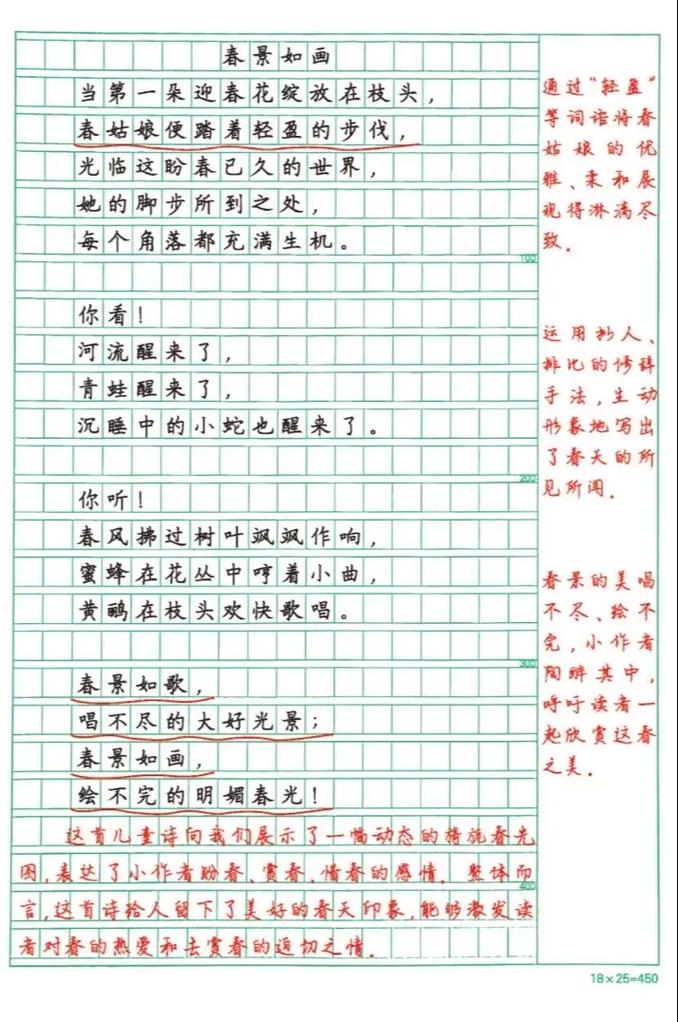 春景如画
当第一朵迎春花绽放在枝头，
春姑娘便踏着轻盈的步伐，
光临这盼春已久的世界，
她的脚步所到之处，
每个角落都充满生机。
100
你看！
河流醒来了，
青蛙醒来了，
沉睡中的小蛇也醒来了。
200
你听！
春风拂过树叶飒飒作响，
蜜蜂在花丛中哼着小曲，
黄鹂在枝头欢快歌唱。
300
春景如歌，
唱不尽的大好光景；
春景如画，
绘不完的明媚春光！
这首儿童诗向我们展示了一幅动态的旖旎春光
图，表达了小作者盼春、赏春、惜春的感情。整体而
400
言，这首诗给人留下了美好的春天印象，能够激发读
者对春的热爱和去赏春的迫切之情。
通过“轻盈”
等词语将春
姑娘的优
雅、柔和展
现得淋漓尽
致。
运用拟人、
排比的修辞
手法，生动
形象地写出
了春天的所
见所闻。
春景的美唱
不尽、绘不
完，小作者
陶醉其中，
呼吁读者一
起欣赏这春
之美。
18×25=450